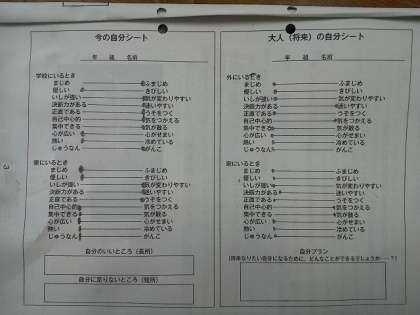 今の自分シート
年 組 名前
学校にいるとき
まじめ ふまじめ
優しい きびしい
いしが強い 気が変わりやすい
決断力がある 迷いやすい
正直である うそをつく
自己中心的 気をつかえる
集中できる 気が散る
心が広い 心がせまい
熱い 冷めている
じゅうなん がんこ
家にいるとき
まじめ ふまじめ
優しい きびしい
いしが強い 気が変わりやすい
決断力がある 迷いやすい
正直である うそをつく
自己中心的 気をつかえる
集中できる 気が散る
心が広い 心がせまい
熱い 冷めている
じゅうなん がんこ
自分のいいところ(長所)
自分に足りないところ(短所)
3
大人(将来)の自分シート
年 組 名前
外にいるとき
まじめ ふまじめ
優しい きびしい
いしが強い 気が変わりやすい
決断力がある 迷いやすい
正直である うそをつく
自己中心的 気をつかえる
集中できる 気が散る
心が広い 心がせまい
熱い 冷めている
じゅうなん がんこ
家にいるとき
まじめ ふまじめ
優しい きびしい
いしが強い 気が変わりやすい
決断力がある 迷いやすい
正直である うそをつく
自己中心的 気をつかえる
集中できる 気が散る
心が広い 心がせまい
熱い 冷めている
じゅうなん がんこ
自分プラン
(将来なりたい自分になるために、どんなことができるでしょうか…?)